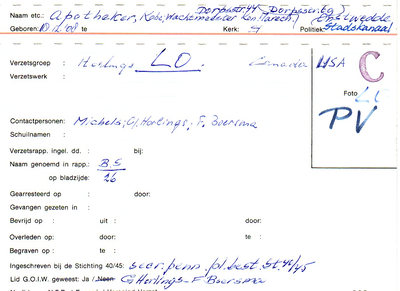 Dorpsstr 44
Naam etc.: Apotheker, Kobe, Wachtmeester Kon. Marech. Onstwedde
Geboren: 10.12.'08 te Kerk: G Politiek: Stadskanaal
Verzetsgroep : Hortings LO Canada USA C
Verzetswerk :
Foto
PV
Contactpersonen: Michels, G. Hortings, F. Boersma
Schuilnaam :
Verzetsrapp. ingel. dd. : bij:
Naam genoemd in rapp.: B.S
op bladzijde: 26
Gearresteerd op : door:
Gevangen gezeten in :
Bevrijd op : uit : door:
Overleden op: door: te :
Begraven op : te :
Ingeschreven bij de Stichting 40/45: secr. penn. pl. best. St. 40/45
Lid G.O.I.W. geweest: Ja / Neen G Hortings - F Boersma